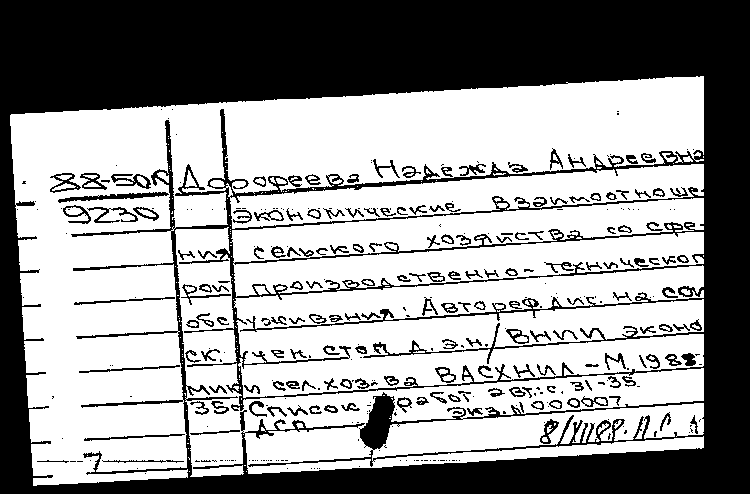 88-50R Дорофеева, Надежда Андреевна
9230 Экономические взаимоотноше-
ния сельского хозяйства со сфе-
рой производственно-технического
обслуживания: Автореф. дис. на сои
ск. учен. степ. д.э.н. / ВНИИ эконо
мики сел. хоз-ва ВАСХНИЛ - М, 1988.
35с Список работ авт.: с. 31-35
ДСП экз. N 000007.
8/XII88. П.С.
7